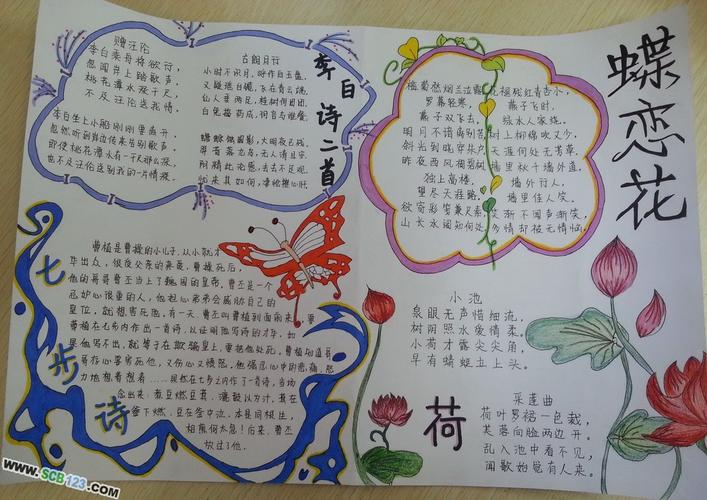 赠汪伦
李白乘舟将欲行,
忽闻岸上踏歌声。
桃花潭水深千尺,
不及汪伦送我情。
李白坐上小船刚刚要离开,
忽然听到岸边传来告别歌声。
即使桃花潭水有一千尺那么深,
也不及汪伦送别我的一片情深。
古朗月行
小时不识月,呼作白玉盘,
又疑瑶台镜,飞在青云端。
仙人垂两足,桂树何团团,
白兔捣药成,问言与谁餐。
蟾蜍蚀圆影,大明夜已残。
羿昔落九乌,天人清且安。
阴精此沦惑,去去不足观。
忧来其如何,凄怆摧心肝。
李白诗二首
蝶恋花
槛菊愁烟兰泣露
罗幕轻寒,
燕子双飞去。
明月不谙离别苦
斜光到晓穿朱户
昨夜西风凋碧树
独上高楼,
望尽天涯路。
欲寄彩笺兼尺素
山长水阔知何处
花褪残红青杏小,
燕子飞时,
绿水人家绕。
枝上柳绵吹又少,
天涯何处无芳草
墙里秋千墙外道
墙外行人,
墙里佳人笑,
笑渐不闻声渐笑
多情却被无情恼
七步诗
曹植是曹操的小儿子,从小就才
华出众,很受父亲的亲爱,曹操死后,
他的哥哥曹丕当上了魏国的皇帝,曹丕是一个
忌妒心很重的人,他担心弟弟会威胁自己的
皇位,就想害死他,有一天,曹丕叫曹植到面前来,要
曹植在七步内作出一首诗,以证明他写诗的才华,如
果他写不出,就等于在欺骗皇上,要把他处死,曹植知道哥
哥存心要害死他,又伤心又愤怒,他强忍心中的悲痛,努
力地想着想着……果然在七步之内作了一首诗,当场
念出来:煮豆燃豆萁,漉豉以为汁,萁在
釜下燃,豆在釜中泣,本是同根生,
相煎何太急!后来,曹丕
放过了他。
荷
小池
泉眼无声惜细流,
树阴照水爱情柔。
小荷才露尖尖角,
早有蜻蜓立上头。
采莲曲
荷叶罗裙一色裁,
芙蓉向脸两边开。
乱入池中看不见,
闻歌始觉有人来。
www.SCB123.com